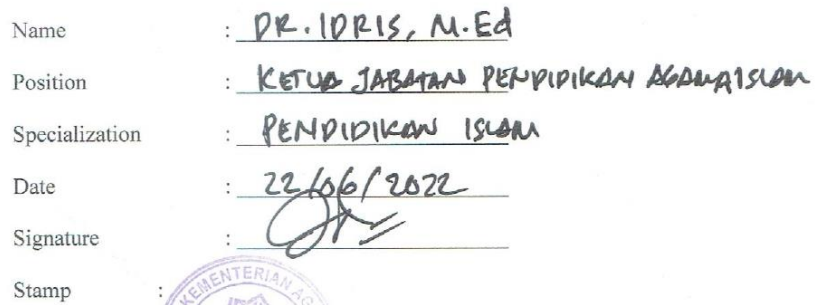 Name : DR. IDRIS, M.Ed
Position : KETUA JABATAN PENDIDIKAN AGAMA ISLAM
Specialization : PENDIDIKAN ISLAM
Date : 22/06/2022
Signature :
Stamp :
KEMENTERIAN